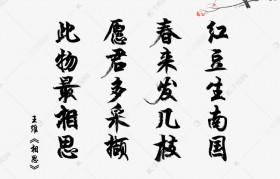 红豆生南国
春来发几枝
愿君多采撷
此物最相思
王维《相思》